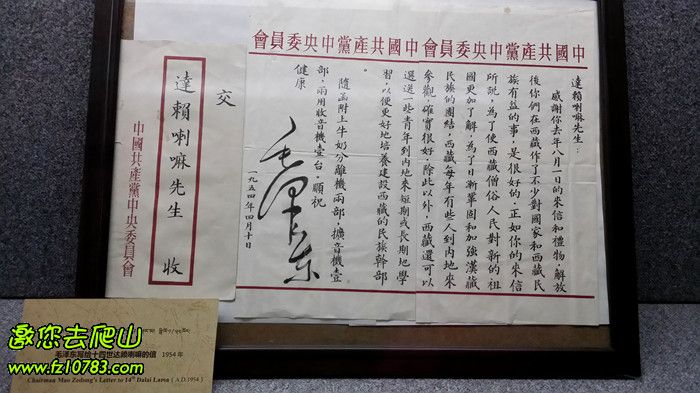 中國共產黨中央委員會
中國共產黨中央委員會
達賴喇嘛先生：
感謝你去年八月一日的來信和禮物。解放
後你們在西藏作了不少對國家和西藏民
族有益的事，是很好的。正如你的來信
所說，為了使西藏僧俗人民對新的祖
國更加了解，為了日新鞏固和加強漢藏
民族的團結，西藏每年有些人到內地來
參觀確實很好。除此以外，西藏還可以
選送一些青年到內地來短期或長期地學
習，以便更好地培養建設西藏的民族幹部
。
隨函附上牛奶分離機兩部，擴音機壹
部，兩用收音機壹台。順祝
健康
毛澤東
一九五四年四月十日
交
達賴喇嘛先生 收
中國共產黨中央委員會
毛泽东写给十四世达赖喇嘛的信 1954年
Chairman Mao Zedong's Letter to 14th Dalai Lama ( A.D.1954 )
邀您去爬山
www.fz10783.com